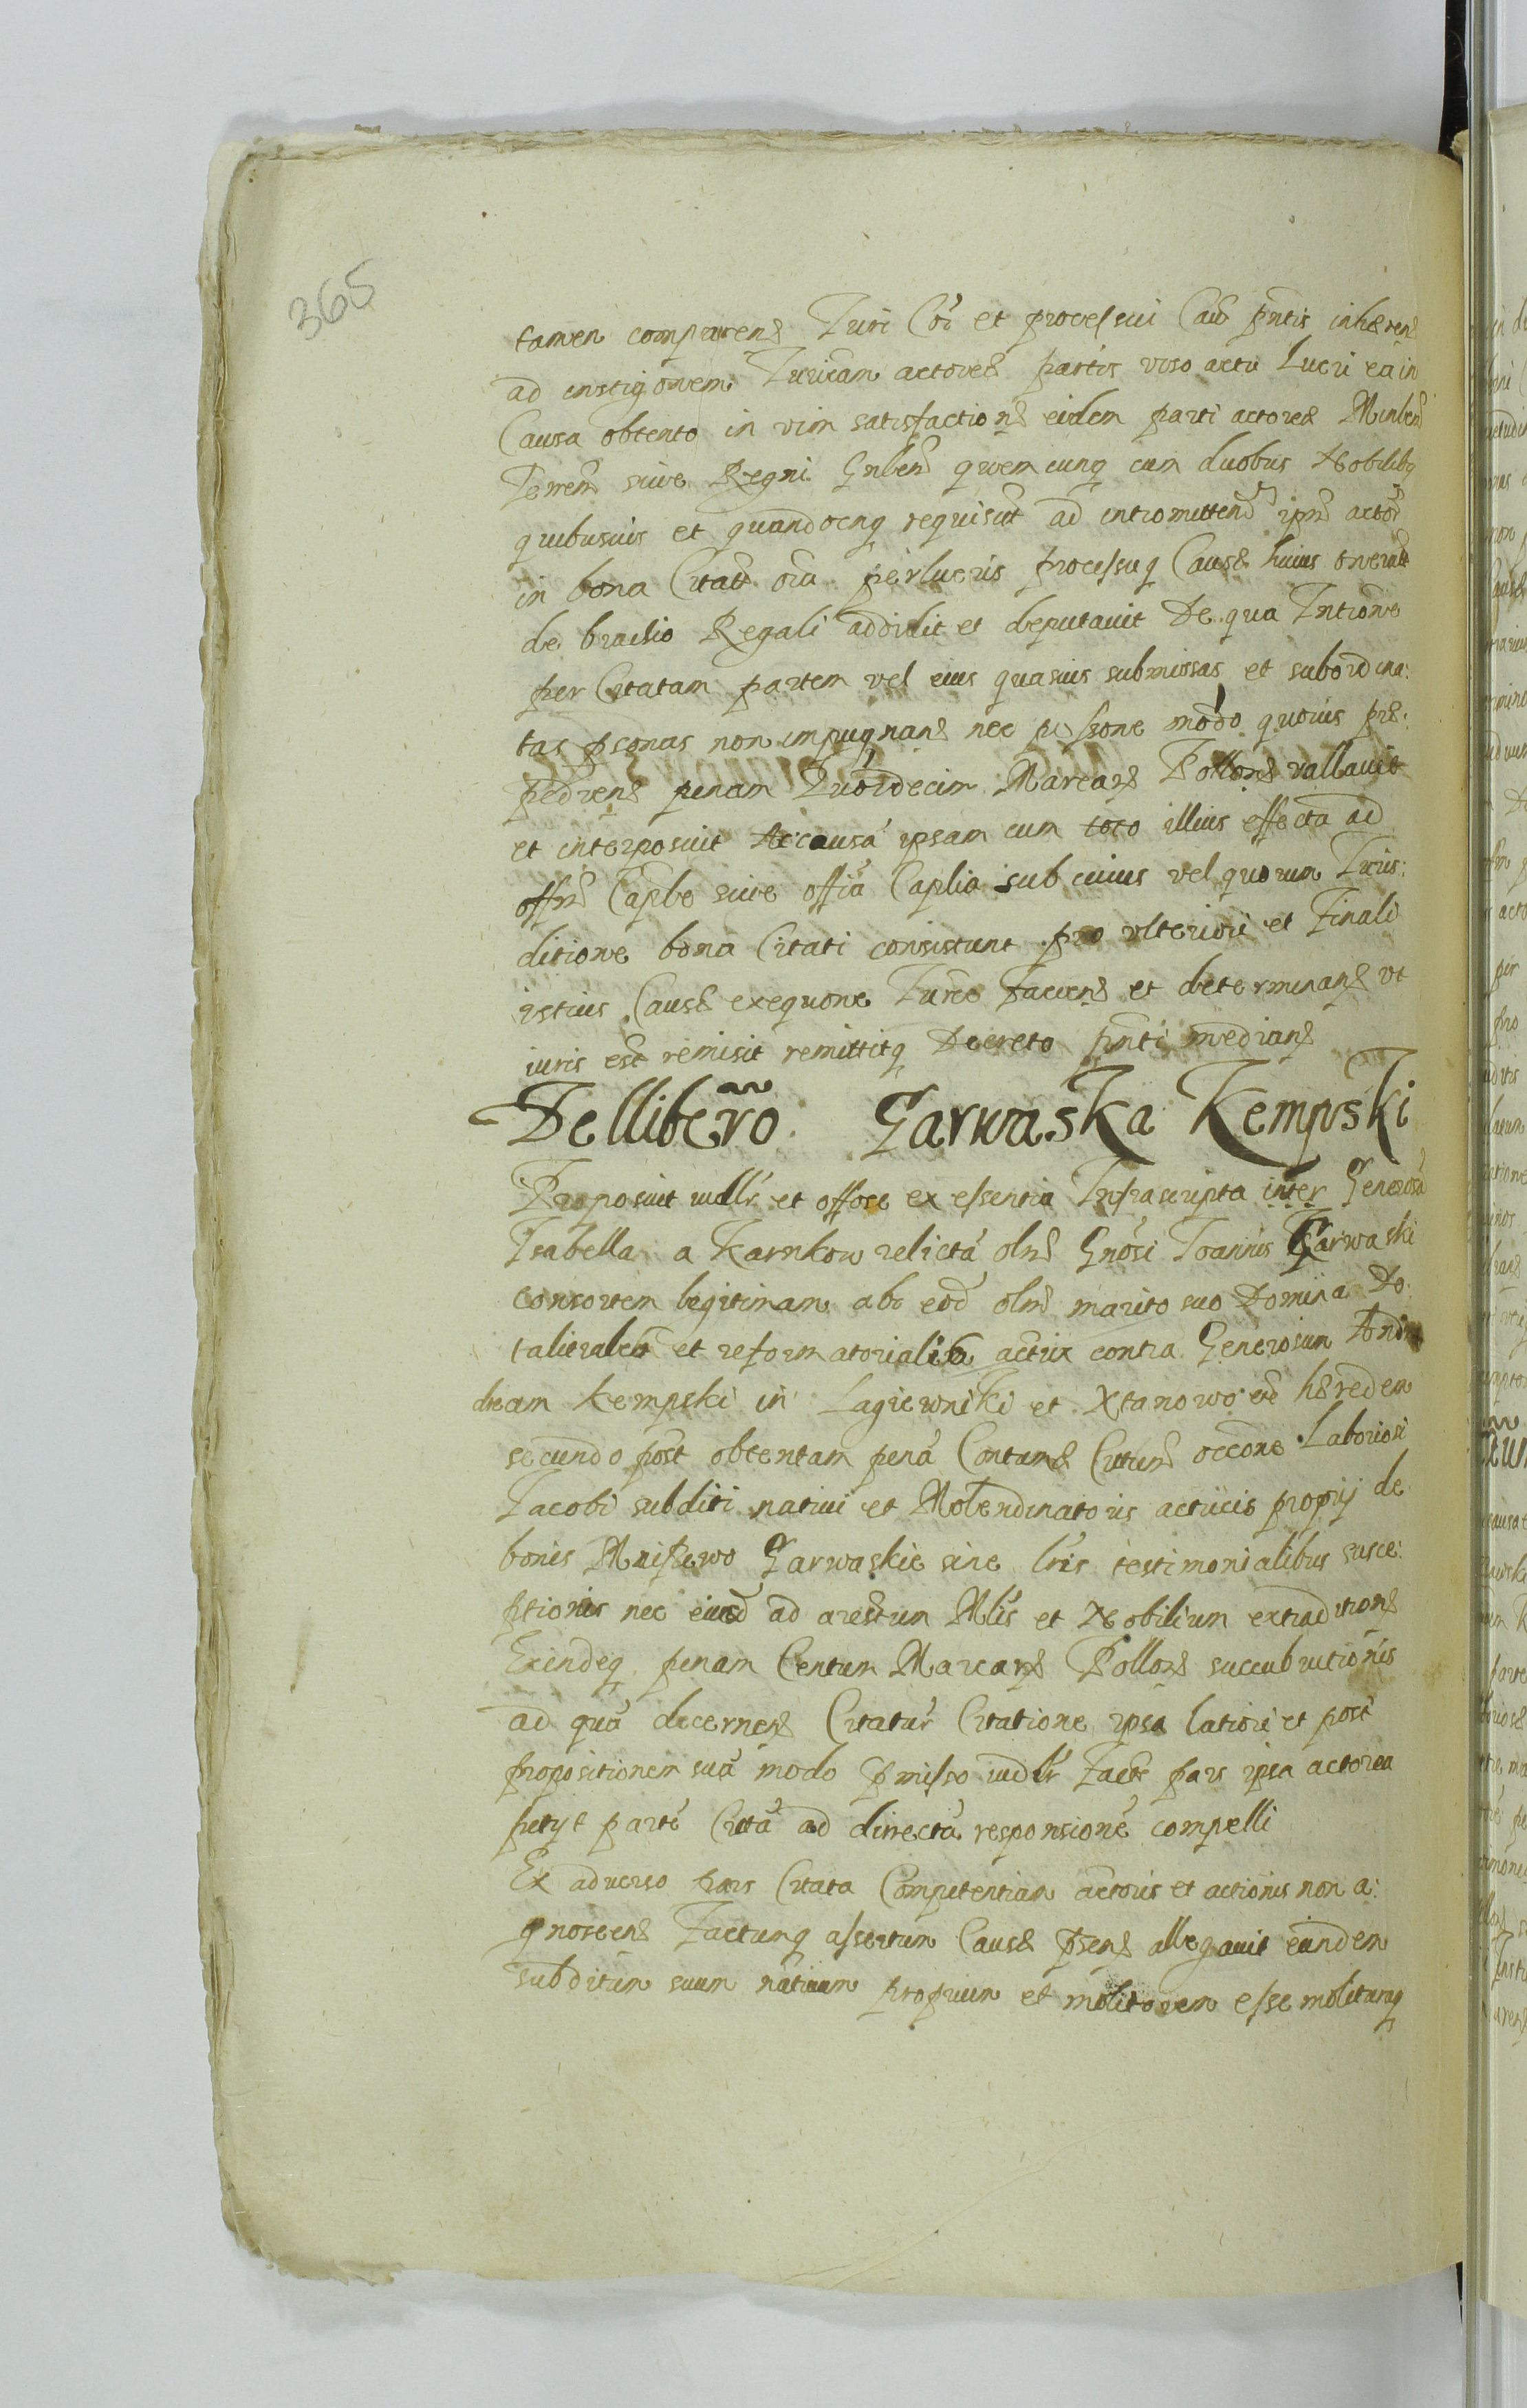 365
tamen comparens Juri Co͞i et processui Caus p͞ntis inhæren
ad instig͞onem Juridicam actoreæ partis viso actu Lucri ea in
Causa obtento in vim satisfactionꝭ eidem parti actoreæ Minlem
Terrem siue Regni G͞nlem quemcunq cum duobus Nobilibq
quibusuis et quandocnq requisit ad intromittend ipm actor
in bona Citati o͞ia per lucris processuq Causæ huius onerata
de brachio Regali addidit et deputauit De qua Intr͞one
per Citatam partem vel eius quasuis submissas et subordina:
tas p͞sonas non impugnanꝭ nec p͞ssione modo quouis præ:
pediens penam Quordecim Marcarꝭ Pollonꝭ vallauit
et interposuit Ac causa ipsam cum toto illius effectu ad
offm Caplbe siue offia Caplia sub cuius vel quorum Juris:
ditione bona Citati consistunt pro vlteriori et Finali
istius Causæ exequ͞one Jure Faciendꝭ et determinandꝭ vt
iuris est remisit remittitq Decreto p͞nti medianꝭ
Delliber͞o Garwaska Kempski
Proposuit iudlr et offose ex essentia Infrascripta inter Generosa
Isabella a Karnkow relicta olm G͞nosi Joannis Garwaski
consortem legitimam abo eod olm marito suo Domina Do:
talitialem et reformatorialem actrix contra Generosum And
dream Kempski in Lagiewniki et Xtanowo et hæredem
secundo post obtentam pena Contumꝭ Citum occ͞one Laboriosi
Jacobi subditi natiui et Molendinatoris actricis proprij de
bonis Mniszewo Garwaskie sine lris testimonialibus susce:
ptionis nec eiusd ad arestum Mlis et Nobilium extraditionꝭ
Exindeq penam Centum Marcarꝭ Pollonꝭ succubutionis
ad qua decernenꝭ Citatur Citatione ipsa latiori et post
propositionem sua modo p͞misso iudlr Facta pars ipsa actorea
petyt parte Cita ad directa responsione compelli
Ex aduerso pars Citata Competentiam actoris et actionis non a:
gnoscenꝭ Factumq assertum Causæ p͞senꝭ allegauit eundem
subditum suum natiuum proprium et molitorem esse molitumq